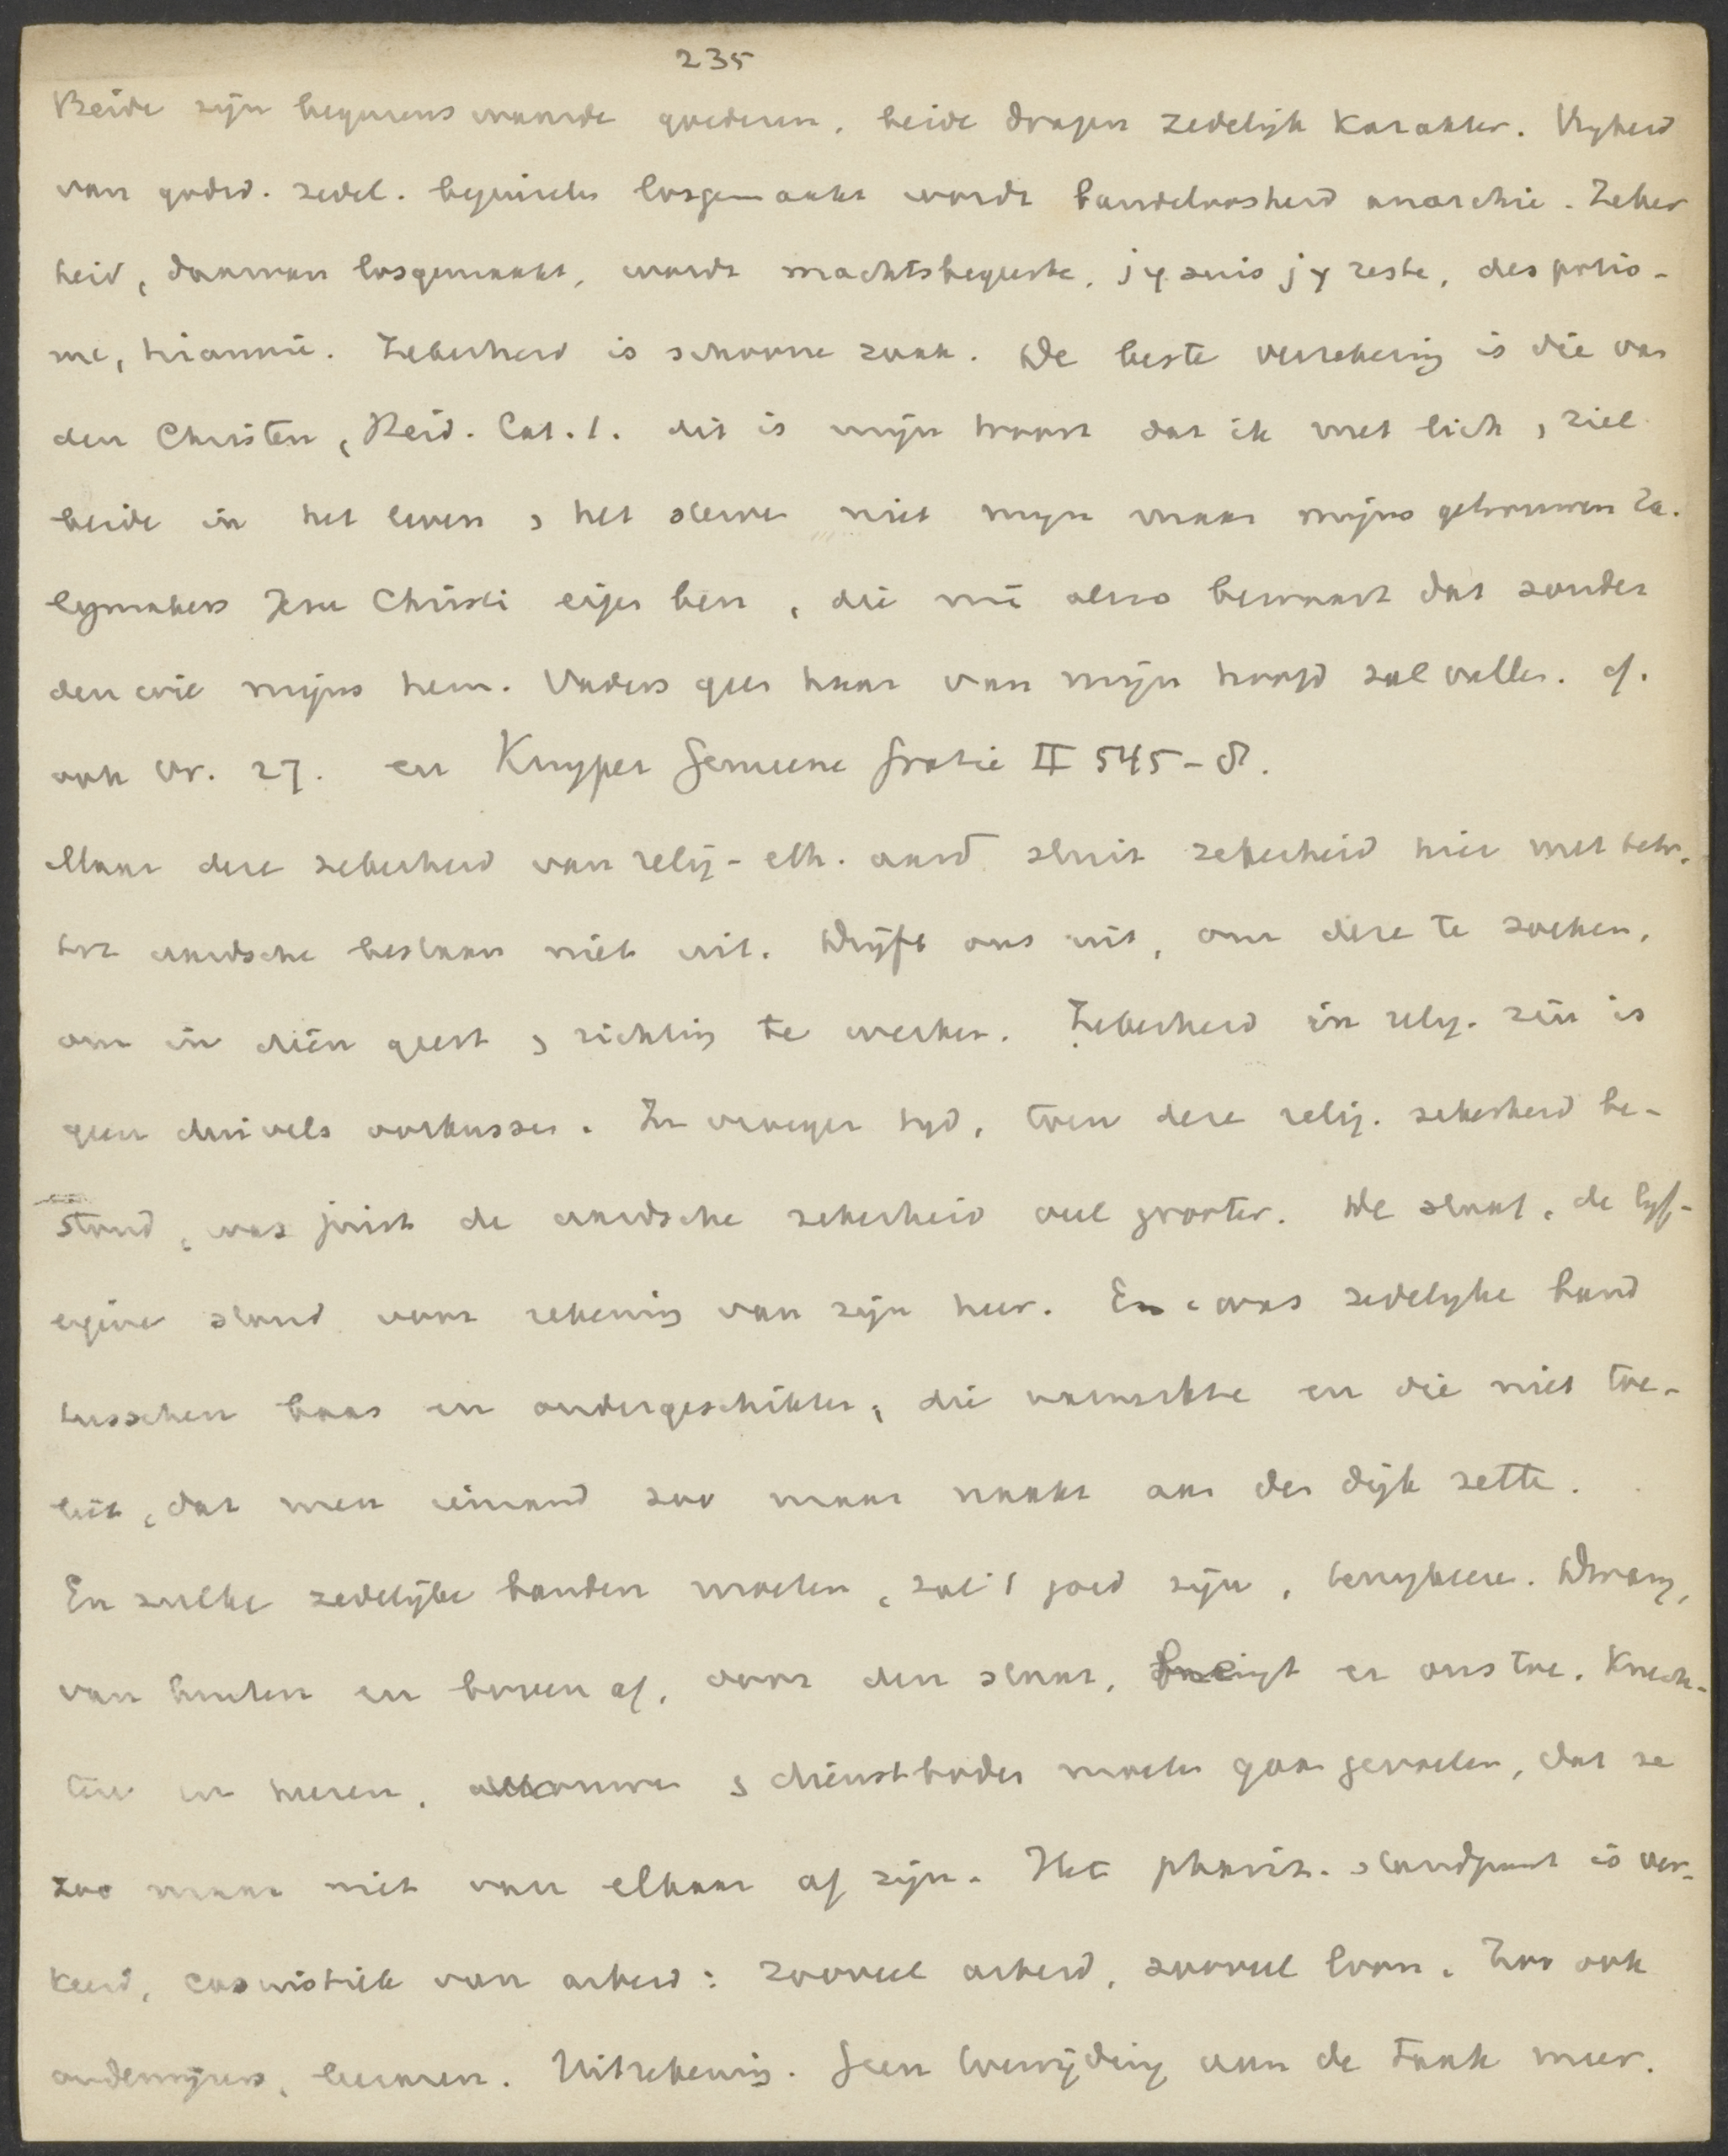 235
Beide zijn begerenswaarde goederen, beide dragen zedelijk karakter. Vryheid
van godsd. zedel. beginselen losgemaakt wordt bandeloosheid anarchie. Zeker
heid, daarvan losgemaakt, wordt machtsbegeerte, j'y suis j'y reste, despotis-
me, tirannie. Zekerheid is schoone zaak. De beste verzekering is die van
den Christen, Heid. Cat. 1. dit is mijn troost dat ik met lich. & ziel
beide in het leven & het sterven niet mijn maar mijns getrouwen Za-
lygmakers Jesu Christi eigen ben, die mi alzoo bewaart dat zonder
den wil mijns hem. Vaders geen haar van mijn hoofd zal vallen. cf.
ook Vr. 27. en Kuyper Gemeene Gratie II 545-8.
Maar deze zekerheid van relig-eth. aard sluit zekerheid hier met betr.
tot aardsche bestaan niet uit. Drijft ons uit, om deze te zoeken,
om in dien geest & richting te werken. Zekerheid in relig. zin is
geen duivels oorkussen. In vroeger tyd, toen deze relig. zekerheid be-
stond, was juist de aardsche zekerheid veel grooter. De slaaf, de lyf-
eigene stond voor rekening van zijn heer. En er was zedelyke band
tusschen baas en ondergeschikten, die vaststelde en die niet toe-
liet, dat men iemand zoo maar naakt aan den dijk zette.
En zulke zedelijke banden moeten, zal 't goed zijn, terugkeeren. Dwang,
van buiten en boven af, door den staat, dreigt er ons toe. Knech-
ten en heeren, vrouwen & dienstboden moeten gaan gevoelen, dat ze
zoo maar niet van elkaar af zijn. Het phariz. standpunt is ver-
keerd, casuistiek van arbeid: zooveel arbeid, zooveel loon. Zoo ook
onderwijzers, leeraren. Uitrekening. Geen toewijding aan de taak meer.